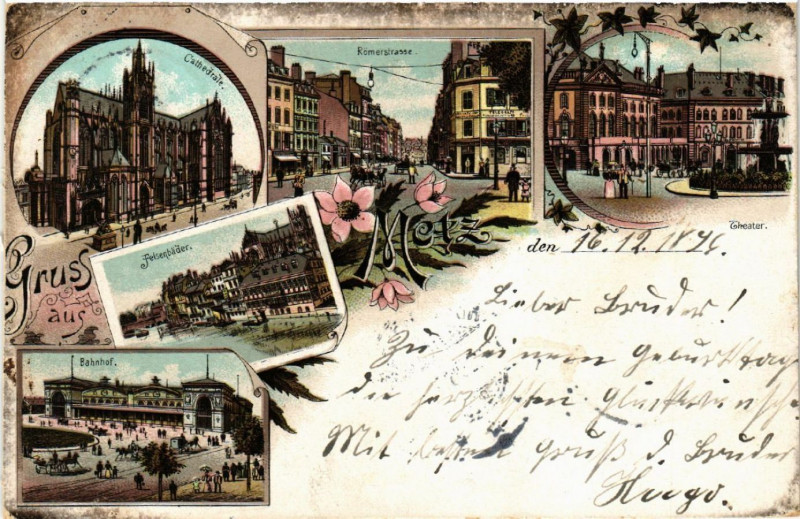 Cathedrale.
Römerstrasse.
Theater.
Felsenbäder.
Gruss
aus
Metz
Bahnhof.
den 16.12.1896.
Lieber Bruder!
Zu Deinem Geburtstag
die herzlichsten Glückwünsche
Mit bestem Gruß d. Bruder
Hugo.